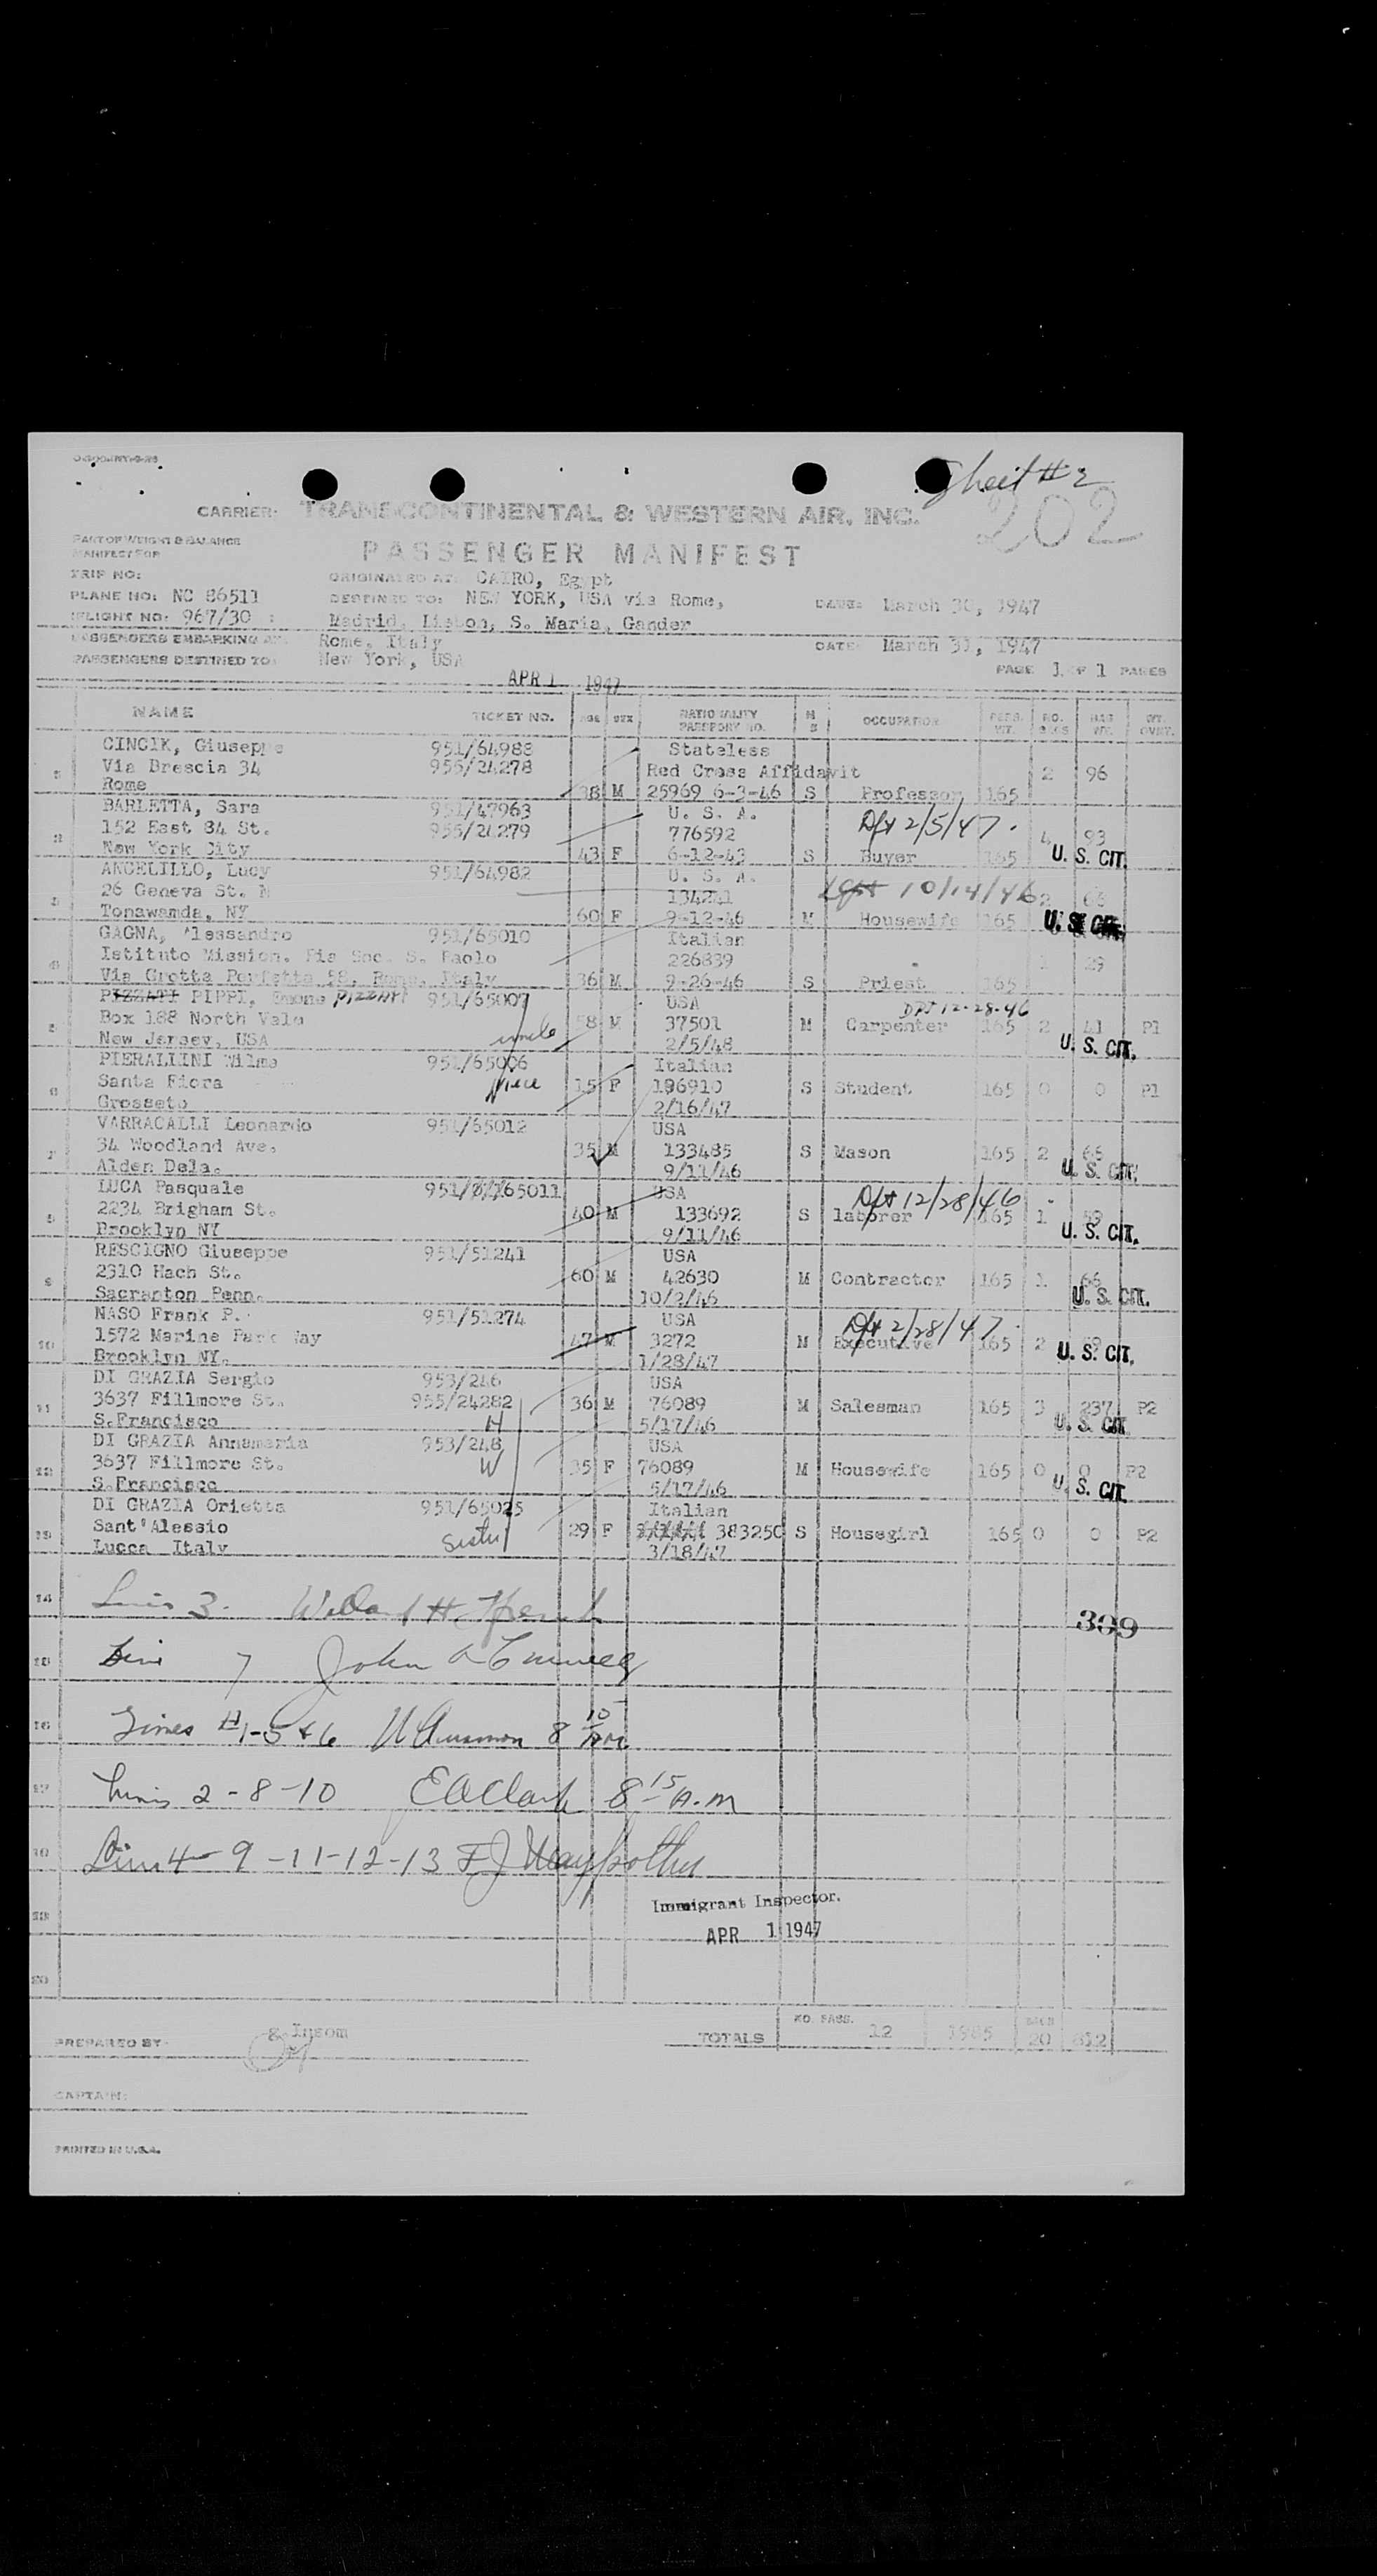 Sheet #2
202
CARRIER: TRANSCONTINENTAL & WESTERN AIR, INC.
PART OF WEIGHT & BALANCE
MANIFEST FOR
PASSENGER MANIFEST
TRIP NO:
ORIGINATED AT: CAIRO, Egypt
PLANE NO: NC 86511
DESTINED TO: NEW YORK, USA via Rome,
DATE: March 30, 1947
FLIGHT NO: 967/30
Madrid, Lisbon, S. Maria, Gander
PASSENGERS EMBARKING AT: Rome, Italy
DATE: March 31, 1947
PASSENGERS DESTINED TO: New York, USA
PAGE 1 OF 1 PAGES
APR 1 1947
NAME TICKET NO. AGE SEX NATIONALITY PASSPORT NO. M S OCCUPATION PERS. WT. NO. BAGS BAG WT. WT. OVWT.
CINCIK, Giuseppe 951/64988 Stateless
Via Brescia 34 955/24278 Red Cross Affidavit 2 96
Rome 38 M 25969 6-3-46 S Professor 165
BARLETTA, Sara 951/47963 U. S. A.
152 East 84 St. 955/24279 776592 Dpt 2/5/47. 4 93
New York City 43 F 6-12-43 S Buyer 165 U. S. CIT.
ANGELILLO, Lucy 951/64982 U. S. A.
26 Geneva St. N 134241 10/14/46 2 66
Tonawamda, NY 60 F 9-12-46 M Housewife 165 U. S. CIT.
GAGNA, Alessandro 951/65010 Italian
Istituto Mission. Pia Soc. S. Paolo 226839 1 29
Via Grotta Perfetta 58, Rome, Italy 36 M 9-26-46 S Priest 165
PIZZATI PIPPI, 951/65007 USA Dpt 12-28-46
Box 188 North Vale 58 M 37501 M Carpenter 165 2 41 P1
New Jersey, USA uncle 2/5/48 U. S. CIT.
PIERALLINI Wilma 951/65006 Italian
Santa Fiora niece 15 F 186910 S Student 165 0 0 P1
Grosseto 2/16/47
VARRACALLI Leonardo 951/65012 USA
34 Woodland Ave. 35 M 133485 S Mason 165 2 66
Alden Dela. 9/11/46 U. S. CIT.
LUCA Pasquale 951/65011 USA Dpt 12/28/46.
2234 Brigham St. 40 M 133692 S laborer 165 1
Brooklyn NY 9/11/46 U. S. CIT.
RESCIGNO Giuseppe 951/51241 USA
2310 Hach St. 60 M 42630 M Contractor 165 1 66
Sacranton Penn. 10/2/46 U. S. CIT.
NASO Frank P. 951/51274 USA Dpt 2/28/47.
1572 Marine Park Way 47 M 3272 M Executive 165 2
Brooklyn NY. 1/28/47 U. S. CIT.
DI GRAZIA Sergio 953/246 USA
3637 Fillmore St. 955/24282 36 M 76089 M Salesman 165 3 237 P2
S.Francisco H 5/17/46 U. S. CIT
DI GRAZIA Annamaria 953/248 USA
3637 Fillmore St. W 35 F 76089 M Housewife 165 0 0 P2
S.Francisco 5/17/46 U. S. CIT.
DI GRAZIA Orietta 951/65025 Italian
Sant'Alessio sister 29 F 383250 S Housegirl 165 0 0 P2
Lucca Italy 3/18/47
Line 3.
309
Line 7 John
Lines #1-5 & 6 8 10 AM
Lines 2 - 8 - 10 E A Clark 8 15 A.M
Line 4 - 9 - 11 - 12 - 13
Immigrant Inspector.
APR 1 1947
PREPARED BY
TOTALS NO. PASS. 12 1985 BAGS 20 812
CAPTAIN:
PRINTED IN U.S.A.